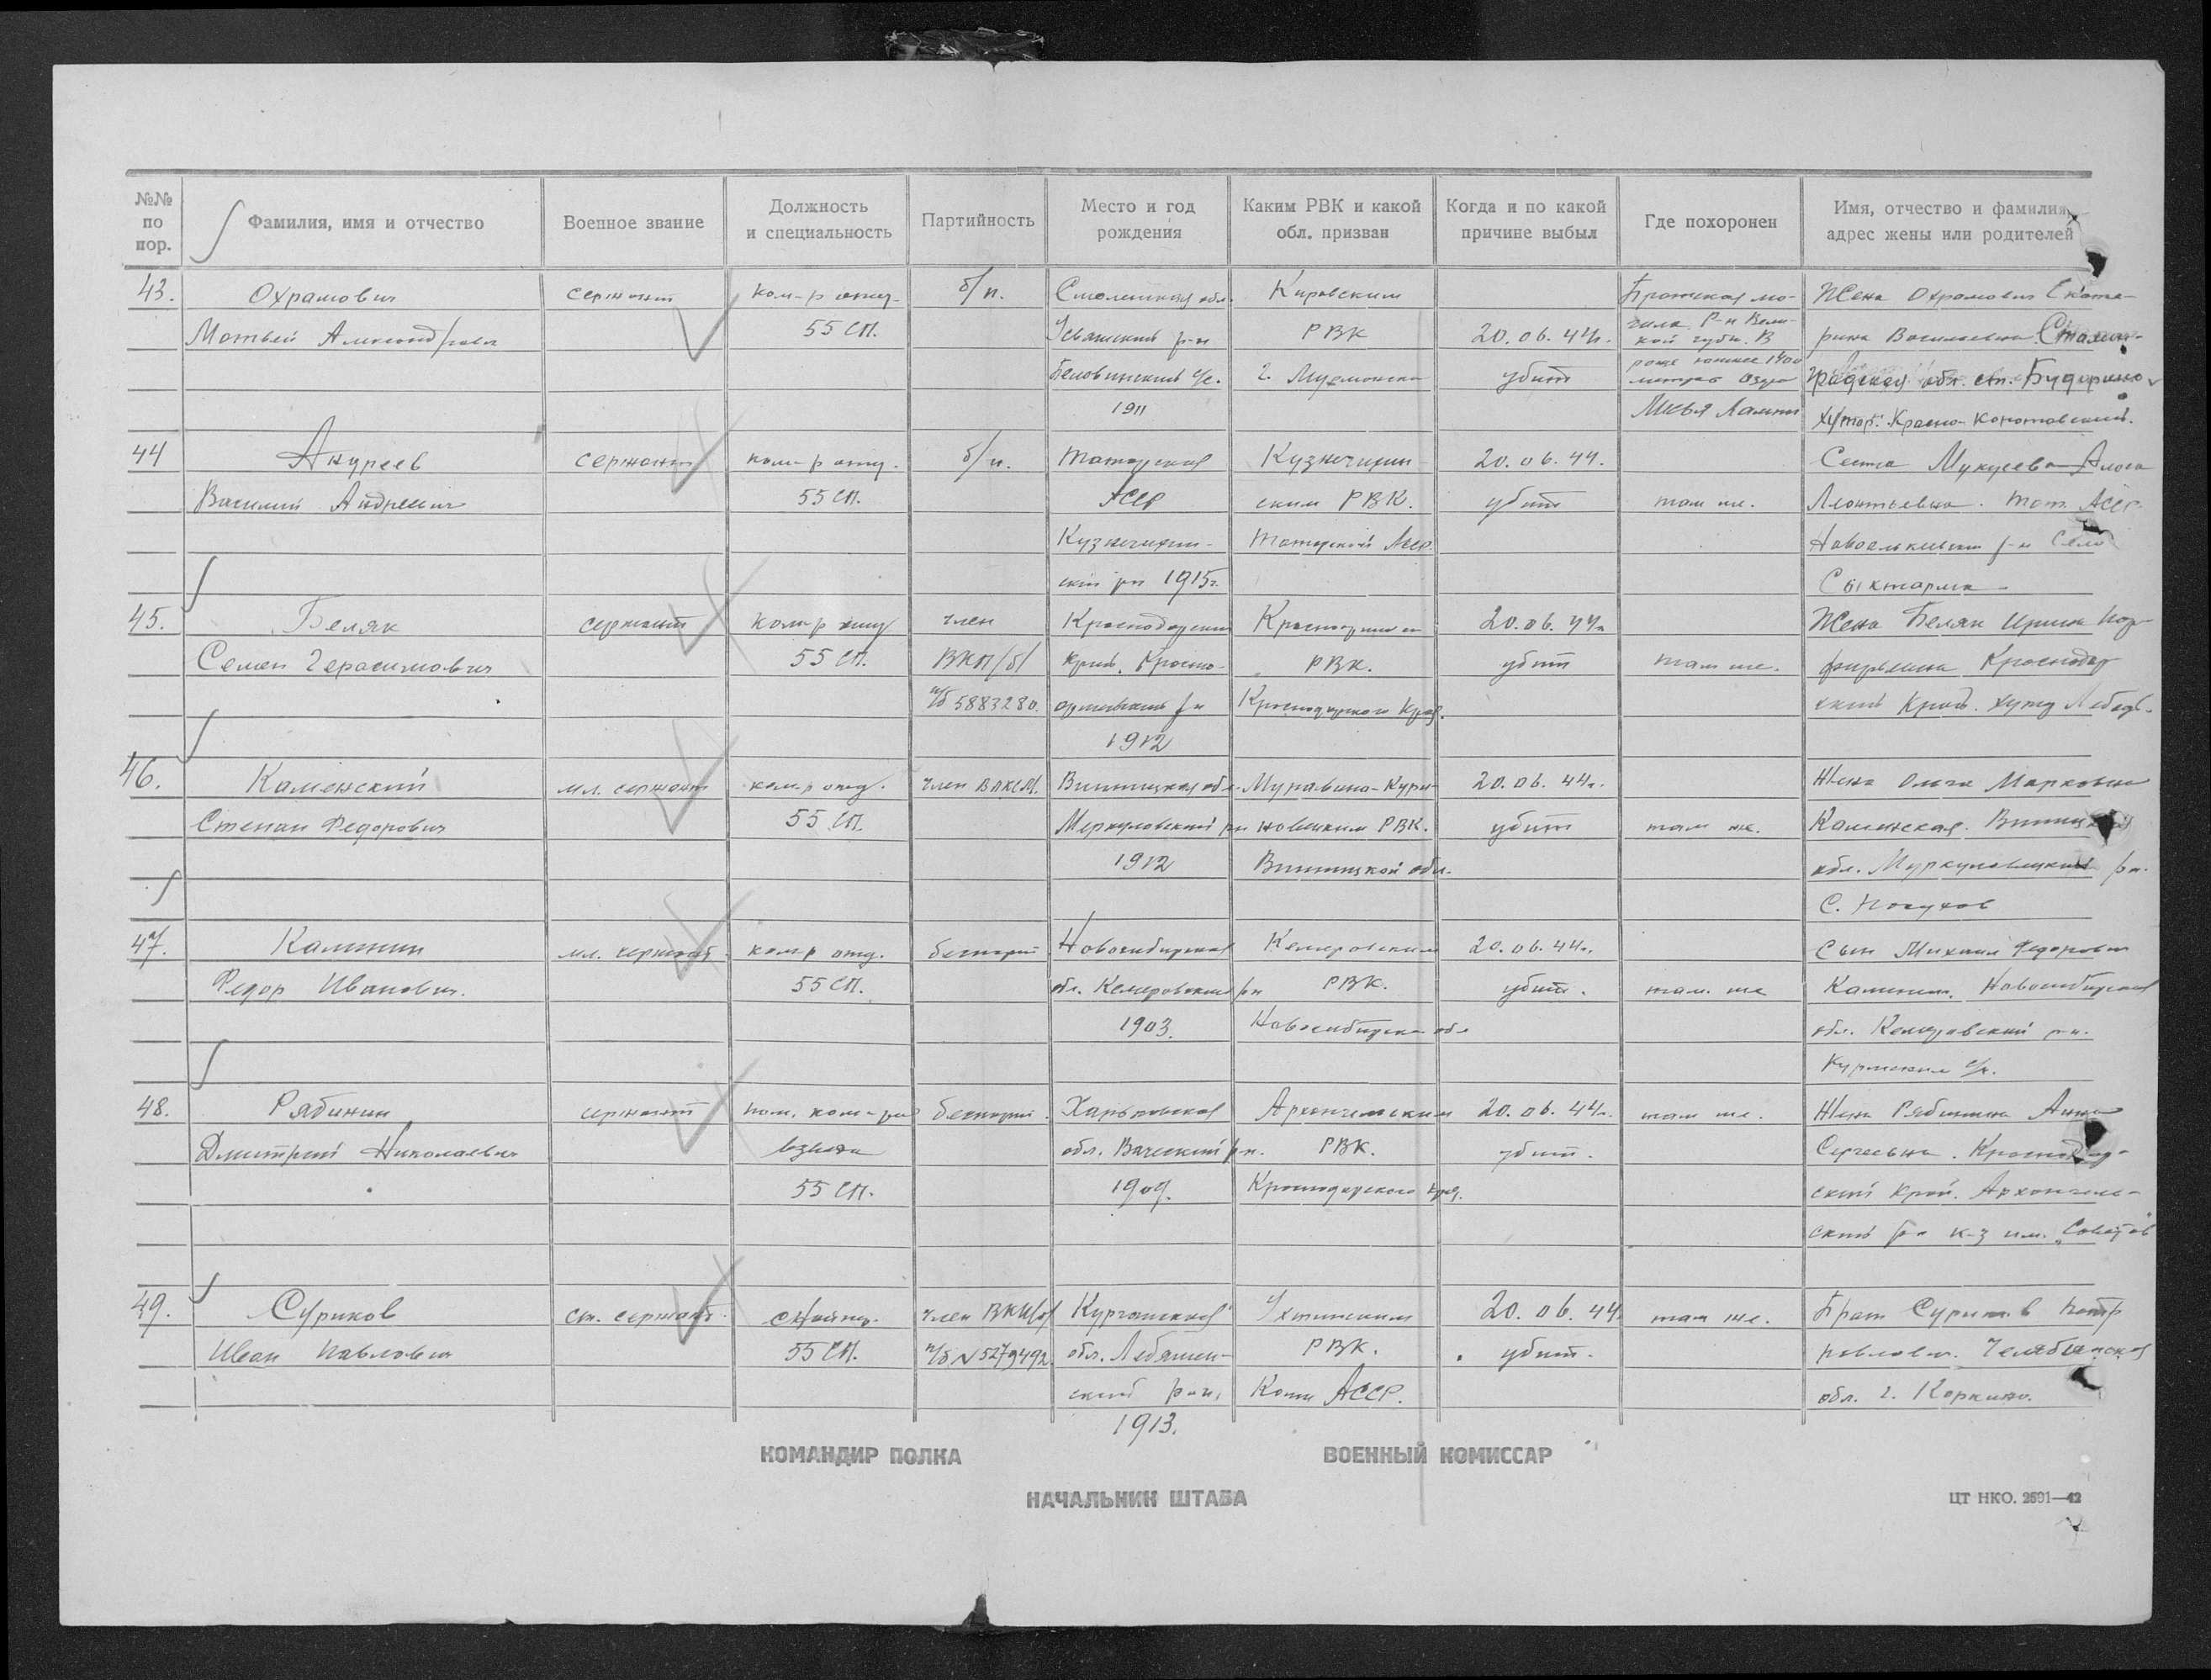 №№ по пор.
Фамилия, имя и отчество
Военное звание
Должность и специальность
Партийность
Место и год рождения
Каким РВК и какой обл. призван
Когда и по какой причине выбыл
Где похоронен
Имя, отчество и фамилия, адрес жены или родителей
43. Охрамович сержант ком-р отд. б/п. Смоленская обл. Кировским Братская мо- Жена Охрамович Екате-
Матвей 55 СП. р-н РВК 20.06.44г. гила. Р-н рина Васильевна. Сталин-
с/с. г. убит градская обл. ст. Бударино
1911 хутор.
44 Андреев сержант ком-р отд. б/п. Татарская Кузнечихин- 20.06.44.
Василий Андреевич 55 СП. АССР ским РВК. убит там же. Леонтьевна. Тат. АССР
Кузнечихин- Татарской АССР р-н село
ский рн 1915г.
45. Беляк сержант ком-р отд член Краснодарский 20.06.44г Жена Беляк Ирина
Семен Герасимович 55 СП. ВКП/б/ край. Красно- РВК. убит там же. Краснодар
п/б 5883280. армейский р-н Краснодарского края. ский край. хутор
1912
46. Каменский мл. сержант ком-р отд. член ВЛКСМ. Винницкая обл. Муравано-Кури- 20.06.44г. Жена Ольга Марковна
Степан Федорович 55 СП. рн ловецким РВК. убит там же. Каменская. Винницкая
1912 Винницкой обл. обл. рн.
с.
47. Калинин мл. сержант ком-р отд. беспарт Новосибирская Кемеровским 20.06.44г. Сын Михаил Федорович
Федор Иванович. 55 СП. обл. Кемеровский рн РВК. убит. там же Калинин. Новосибирская
1903. Новосибирской обл обл. Кемеровский р-н.
с/с.
48. Рябинин сержант пом. ком-ра беспарт. Харьковская Архангельским 20.06.44г. там же. Жена Рябинина Анна
Дмитрий Николаевич взвода обл. рн. РВК. убит. Сергеевна. Краснодар-
55 СП. 1909. Краснодарского края. ский край. Архангель-
ский р-н к-з им. „Советов"
49. Суриков ст. сержант. снайпер. член ВКП(б) Курганская Ухтинским 20.06.44 там же. Брат Суриков Петр
Иван Павлович 55 СП. п/б N 5279492 обл. Лебяжен- РВК. убит. Павлович. Челябинская
ский р-н, Коми АССР. обл. г. Коркино.
1913.
КОМАНДИР ПОЛКА
ВОЕННЫЙ КОМИССАР
НАЧАЛЬНИК ШТАБА
ЦТ НКО. 2591—42